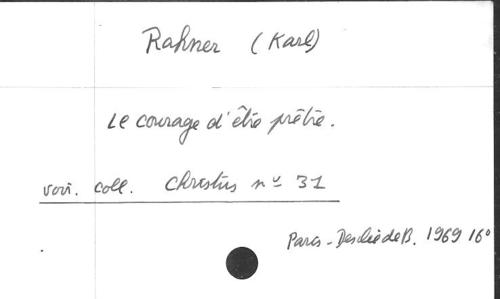 Rahner (Karl)
Le courage d'être prêtre.
voir. coll. Christus nº 31
Paris - Desclée de B. 1969 16°